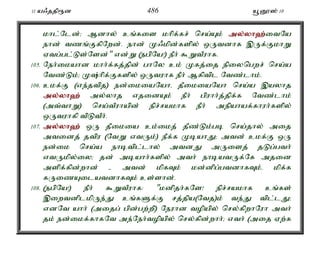 11 யஃததிரூன 486 யூனுஸ் 10
மாட்டேன்; ஆனால் உங்களை மரிக்கச் செய்யும் அல்லாஹ்வையே
நான் வணங்குகிறேன். நான் முஃமின்களில் ஒருவனாக இருக்குமாறு
ஏவப்பட்டுள்ளேன்" என்று (நபியே) நீர் கூறுவீராக.
105. நேர்மையான மார்க்கத்தின் பாலே உம் முகத்தை நிலைபெறச் செய்ய
வேண்டும்; முஷ்ரிக்குகளில் ஒருவராக நீர் ஆகிவிட வேண்டாம்.
106. உமக்கு (எந்தவித) நன்மையையோ, தீமையையோ செய்ய இயலாத
அல்லாஹ் அல்லாத எதனையும் நீர் பிரார்த்திக்க வேண்டாம்
(அவ்வாறு) செய்வீராயின் நிச்சயமாக நீர் அநியாயக்காரர்களில்
ஒருவராகி விடுவீர்.
107. அல்லாஹ் ஒரு தீமையை உம்மைத் தீண்டும்படி செய்தால் அதை
அவனைத் தவிர (வேறு எவரும்) நீக்க முடியாது; அவன் உமக்கு ஒரு
நன்மை செய்ய நாடிவிட்டால் அவனது அருளைத் தடுப்பவர்
எவருமில்லை; தன் அடியார்களில் அவர் நாடியவருக்கே அதனை
அளிக்கின்றான் - அவன் மிகவும் மன்னிப்பவனாகவும், மிக்க
கருணையுடையவனாகவும் உள்ளான்.
108. (நபியே!) நீர் கூறுவீராக: "மனிதர்களே! நிச்சயமாக உங்கள்
இறைவனிடமிருந்து உங்களுக்கு சத்திய(வேத)ம் வந்து விட்டது;
எனவே யார் (அதைப் பின்பற்றி) நேரான வழியில் செல்கிறாரோ அவர்
தம் நன்மைக்காகவே அந்நேர்வழியில் செல்கின்றார்; எவர் (அதை ஏற்க